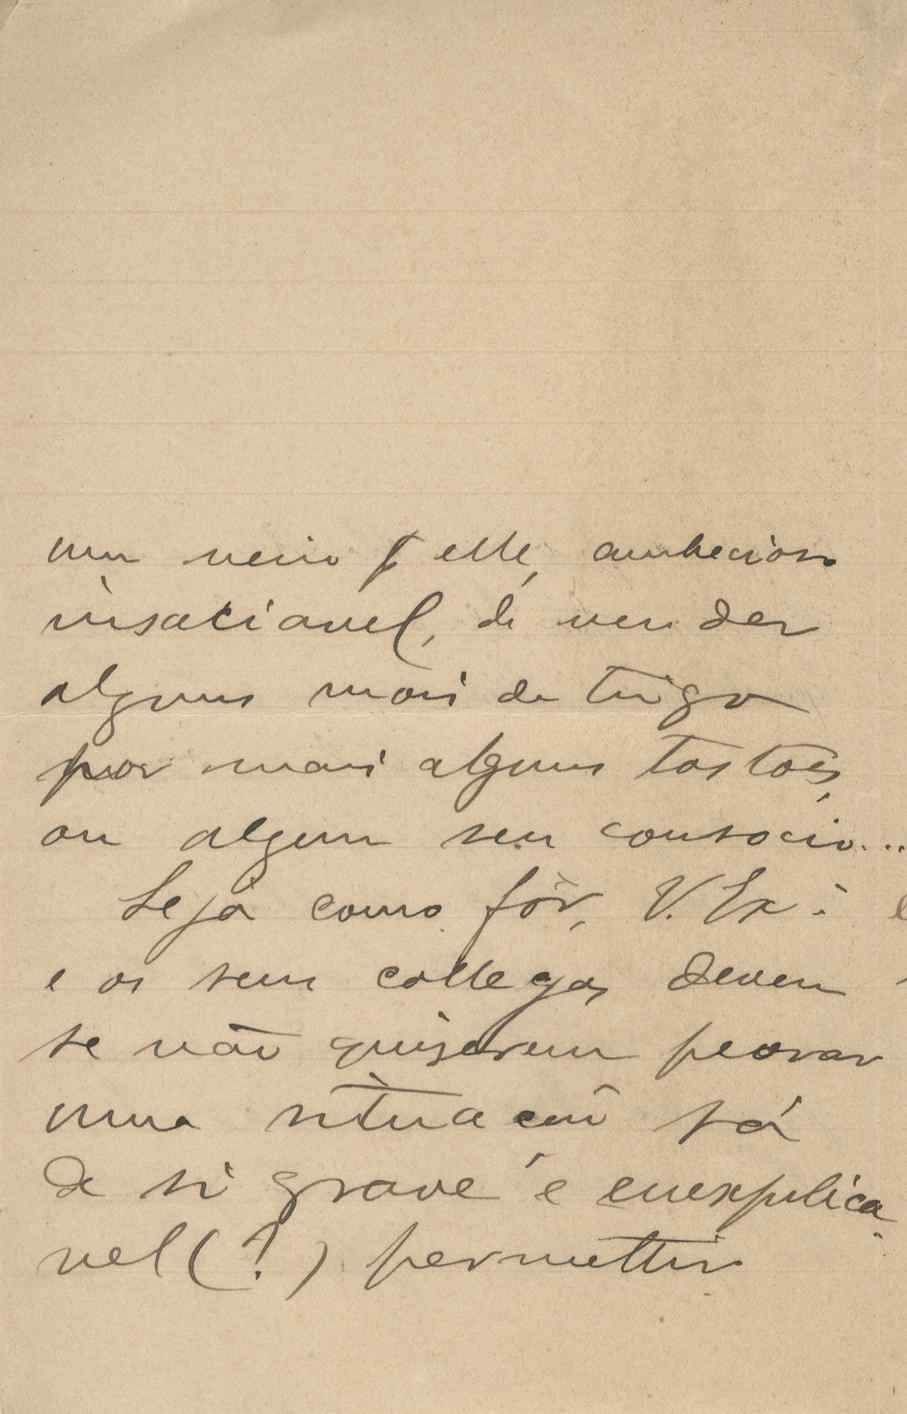 um meio p elle, ambecioso
insaciavel, de vender
alguns mois de trigo
por mais alguns tostões,
ou algum seu consocio...
Seja como fôr, V. Ex.ª
e os seus collegas devem
se não quiserem peorar
uma situação já
de si grave e enexplica
vel (?) permettir